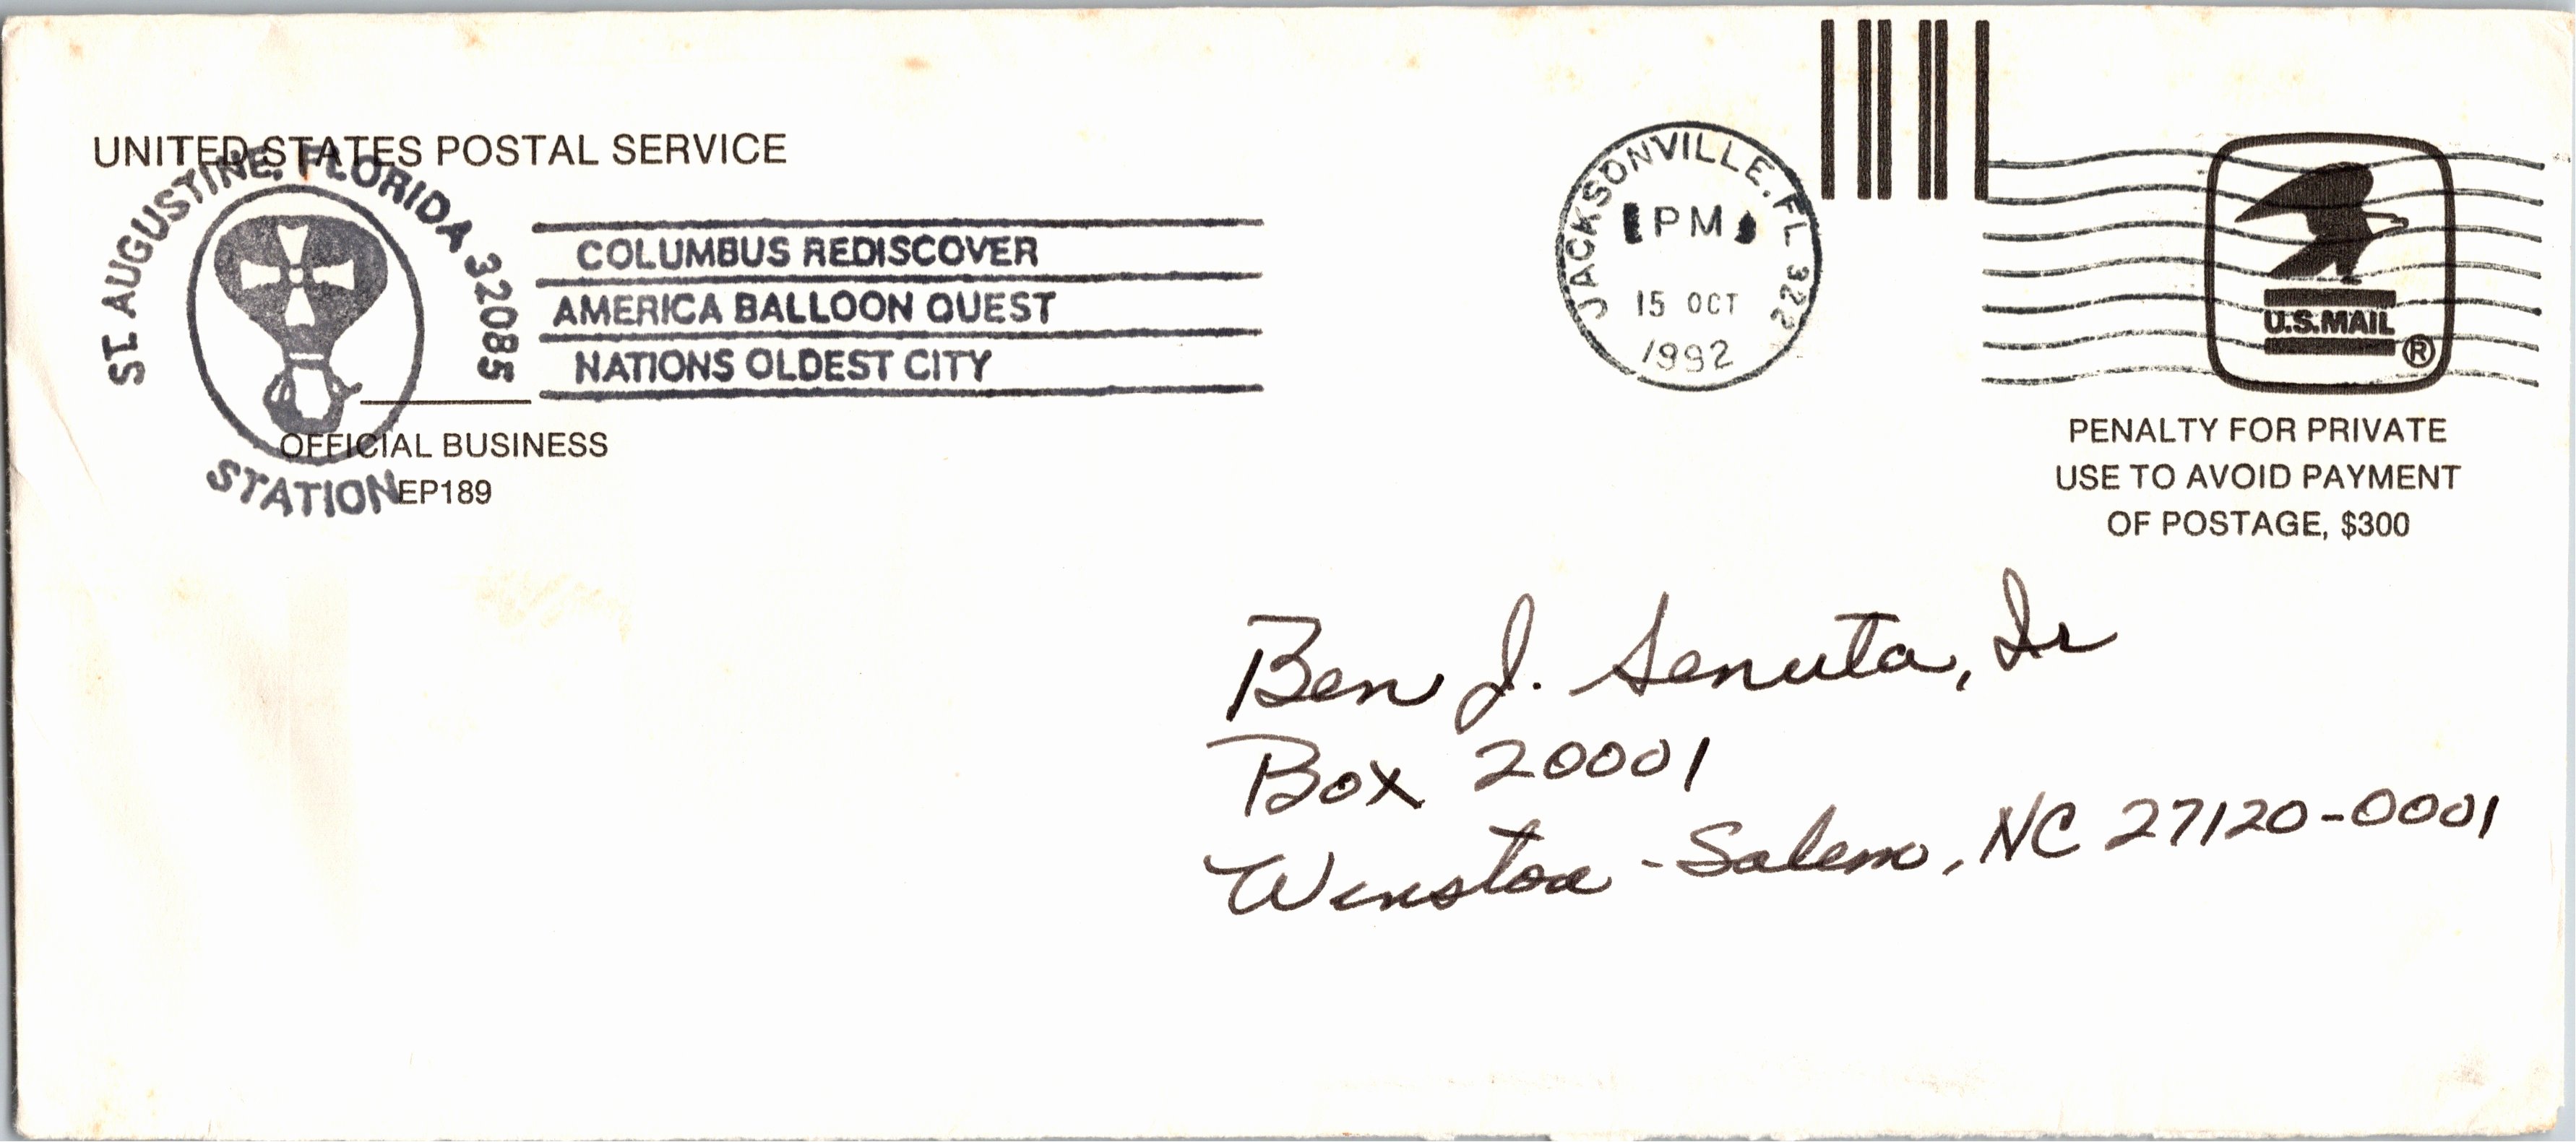 UNITED STATES POSTAL SERVICE
ST. AUGUSTINE, FLORIDA 32085
STATION
COLUMBUS REDISCOVER
AMERICA BALLOON QUEST
NATIONS OLDEST CITY
OFFICIAL BUSINESS
EP189
JACKSONVILLE, FL 322
PM
15 OCT
1992
U.S.MAIL
®
PENALTY FOR PRIVATE
USE TO AVOID PAYMENT
OF POSTAGE, $300
Ben J. Senuta, Jr
Box 20001
Winston-Salem, NC 27120-0001